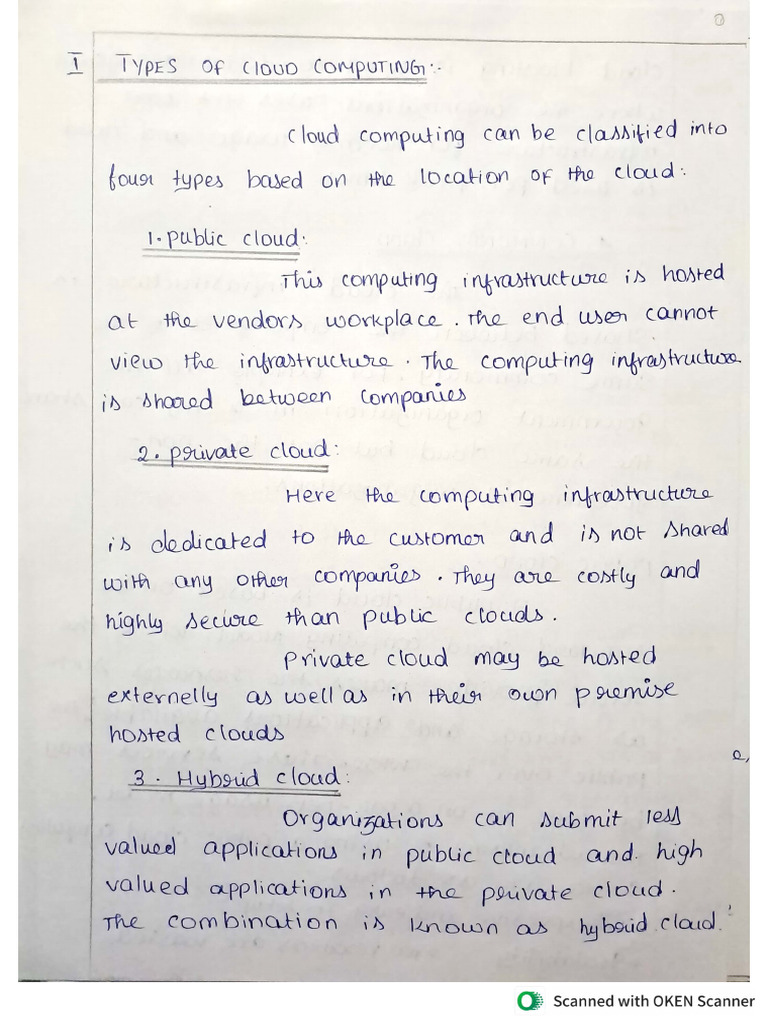 I TYPES OF CLOUD COMPUTING:-
Cloud computing can be classified into
four types based on the location of the cloud:
1. public cloud:
This computing infrastructure is hosted
at the vendors workplace. The end user cannot
view the infrastructure. The computing infrastructure
is shared between companies
2. private cloud:
Here the computing infrastructure
is dedicated to the customer and is not shared
with any other companies. They are costly and
highly secure than public clouds.
Private cloud may be hosted
externelly as well as in their own premise
hosted clouds
3. Hybrid cloud:
Organizations can submit less
valued applications in public cloud and high
valued applications in the private cloud.
The combination is known as hybrid cloud.
Scanned with OKEN Scanner